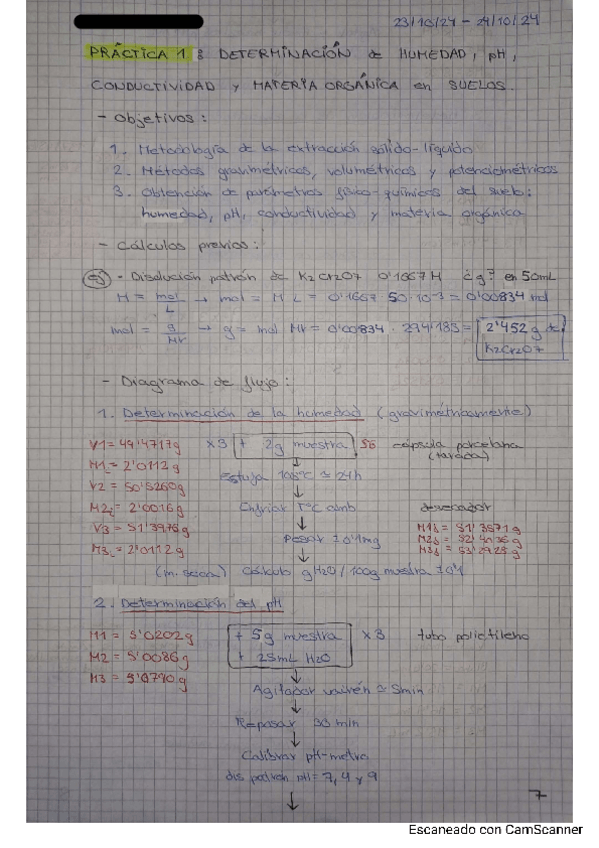 23/10/24 - 24/10/24
PRÁCTICA 1: DETERMINACIÓN de HUMEDAD, pH,
CONDUCTIVIDAD y MATERIA ORGÁNICA en SUELOS.
- Objetivos:
1. Metodología de la extracción sólido-líquido
2. Métodos gravimétricos, volumétricos y potenciométricos
3. Obtención de parámetros físico-químicos del suelo:
humedad, pH, conductividad y materia orgánica
- Cálculos previos:
- Disolución patrón de K2Cr2O7 0'1667M ¿g? en 50mL
M = mol/L → mol = M·L = 0'1667·50·10⁻³ = 0'00834 mol
mol = g/Mr → g = mol·Mr = 0'00834·294'185 = 2'452 g de K2Cr2O7
- Diagrama de flujo:
1. Determinación de la humedad (gravimétricamente)
V1 = 49'4717g x3 + 2g muestra cápsula porcelana
M1i = 2'0112g (tarada)
Estufa 105ºC ≃ 24h
V2 = 50'5260g
M2i = 2'0016g Enfriar TºC amb desecador
V3 = 51'3976g M1f = 51'3571g
Pesar ±0'1mg M2f = 52'4136g
M3i = 2'0112g M3f = 53'2928g
(m. seca) Cálculo gH2O/100g muestra ±0'1
2. Determinación del pH
M1 = 5'0202g + 5g muestra x3 tubo polietileno
M2 = 5'0086g + 25mL H2O
M3 = 5'0790g
Agitador vaivén ≃ 5min
Reposar 30 min
Calibrar pH-metro
dis patrón pH = 7, 4 y 9
7
Escaneado con CamScanner